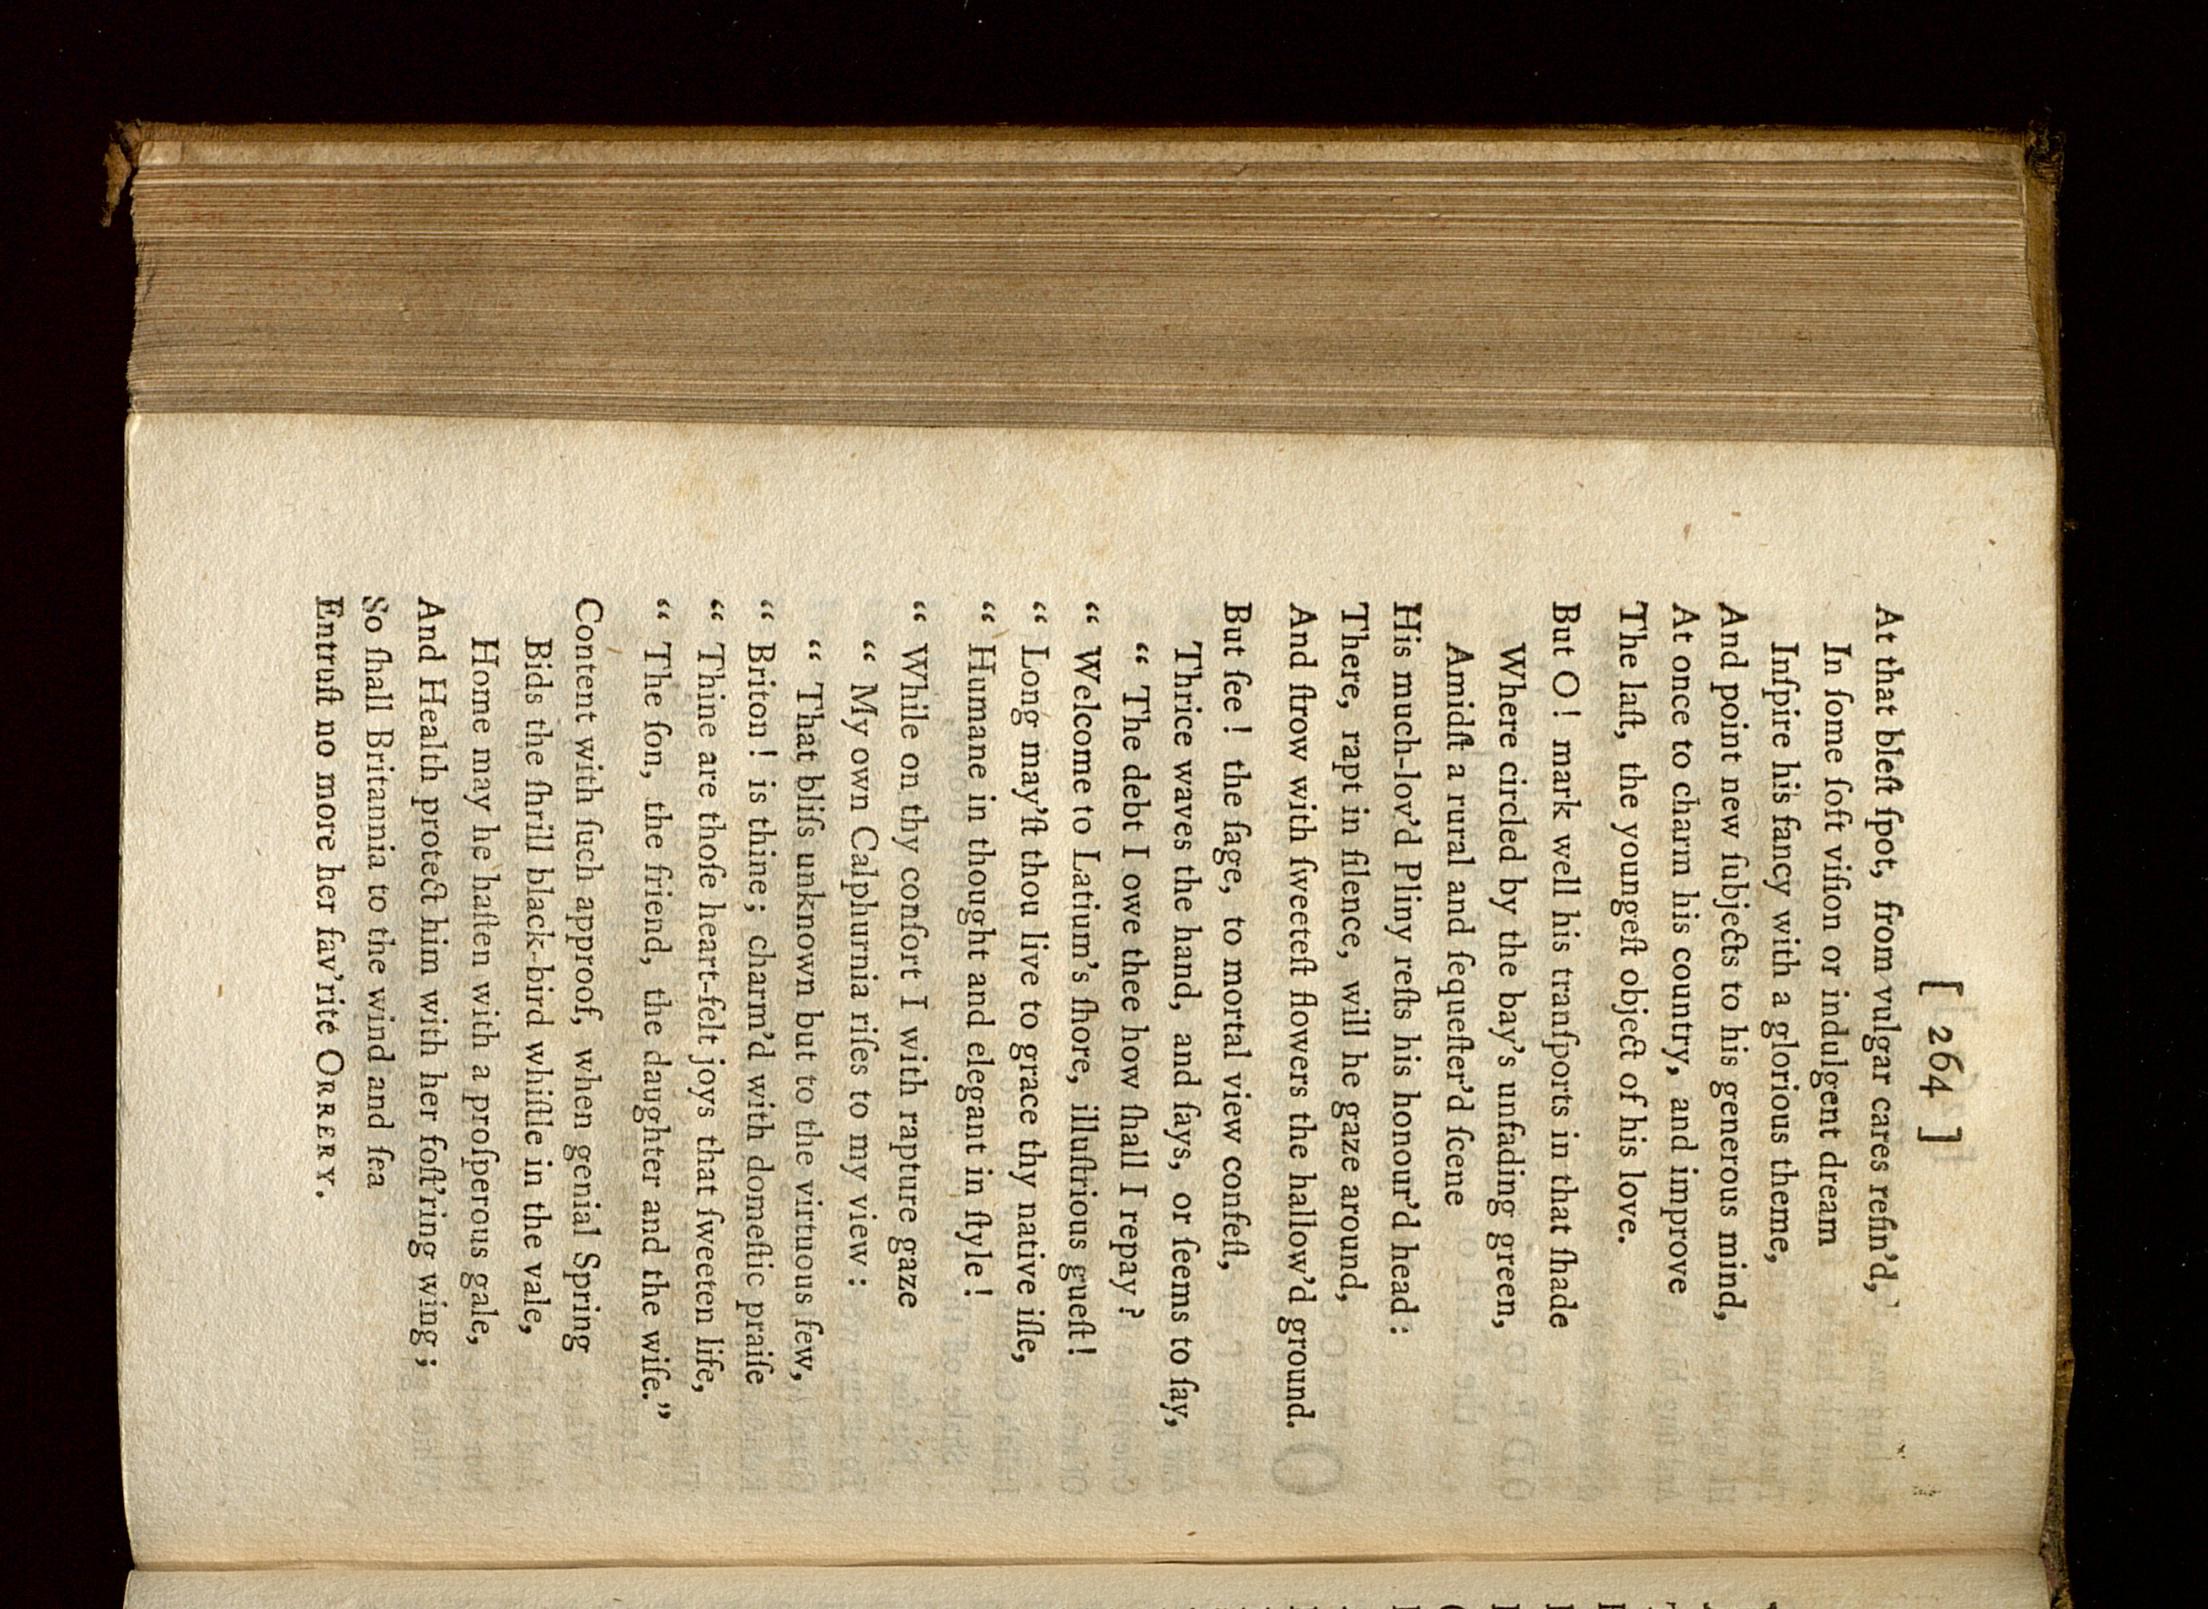 [ 264 ]
At that bleſt ſpot, from vulgar cares refin'd,
In ſome ſoft viſion or indulgent dream
Inſpire his fancy with a glorious theme,
And point new ſubjects to his generous mind,
At once to charm his country, and improve
The laſt, the youngeſt object of his love.
But O! mark well his tranſports in that ſhade
Where circled by the bay's unfading green,
Amidſt a rural and ſequeſter'd ſcene
His much-lov'd Pliny reſts his honour'd head:
There, rapt in ſilence, will he gaze around,
And ſtrow with ſweeteſt flowers the hallow'd ground.
But ſee! the ſage, to mortal view confeſt,
Thrice waves the hand, and ſays, or ſeems to ſay,
“ The debt I owe thee how ſhall I repay?
“ Welcome to Latium's ſhore, illuſtrious gueſt!
“ Long may'ſt thou live to grace thy native iſle,
“ Humane in thought and elegant in ſtyle!
“ While on thy conſort I with rapture gaze
“ My own Calphurnia riſes to my view:
“ That bliſs unknown but to the virtuous few,
“ Briton! is thine; charm'd with domeſtic praiſe
“ Thine are thoſe heart-felt joys that ſweeten life,
“ The ſon, the friend, the daughter and the wife.”
Content with ſuch approof, when genial Spring
Bids the ſhrill black-bird whiſtle in the vale,
Home may he haſten with a proſperous gale,
And Health protect him with her foſt'ring wing;
So ſhall Britannia to the wind and ſea
Entruſt no more her fav'rite ORRERY.